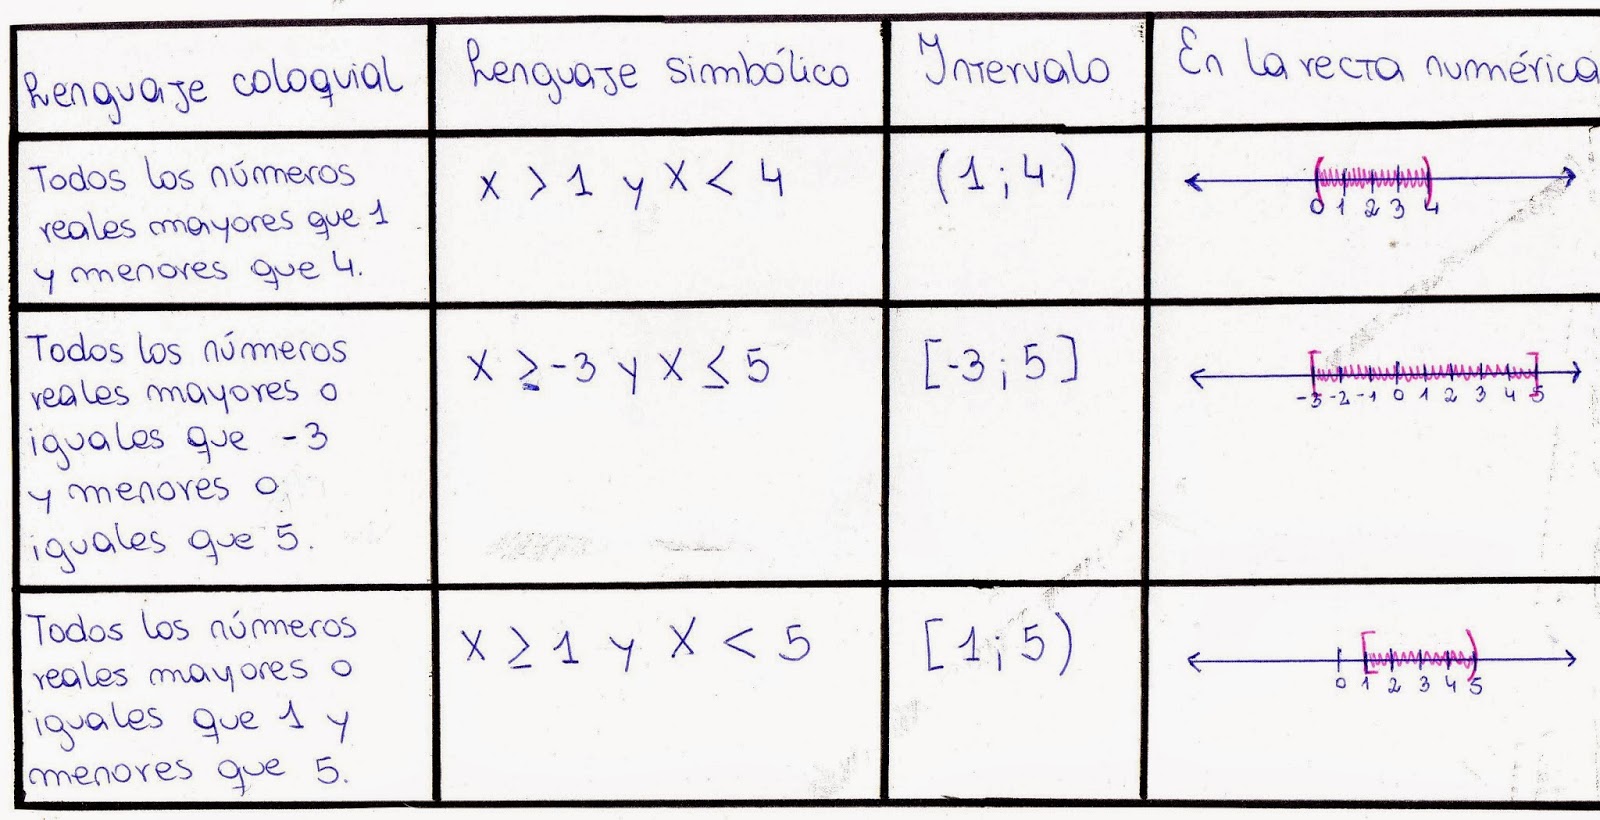 Lenguaje coloquial
Lenguaje simbólico
Intervalo
En la recta numérica
Todos los números
reales mayores que 1
y menores que 4.
x > 1 y x < 4
(1 ; 4)
0 1 2 3 4
Todos los números
reales mayores o
iguales que -3
y menores o
iguales que 5.
x ≥ -3 y x ≤ 5
[-3 ; 5]
-3 -2 -1 0 1 2 3 4 5
Todos los números
reales mayores o
iguales que 1 y
menores que 5.
x ≥ 1 y x < 5
[1 ; 5)
0 1 2 3 4 5